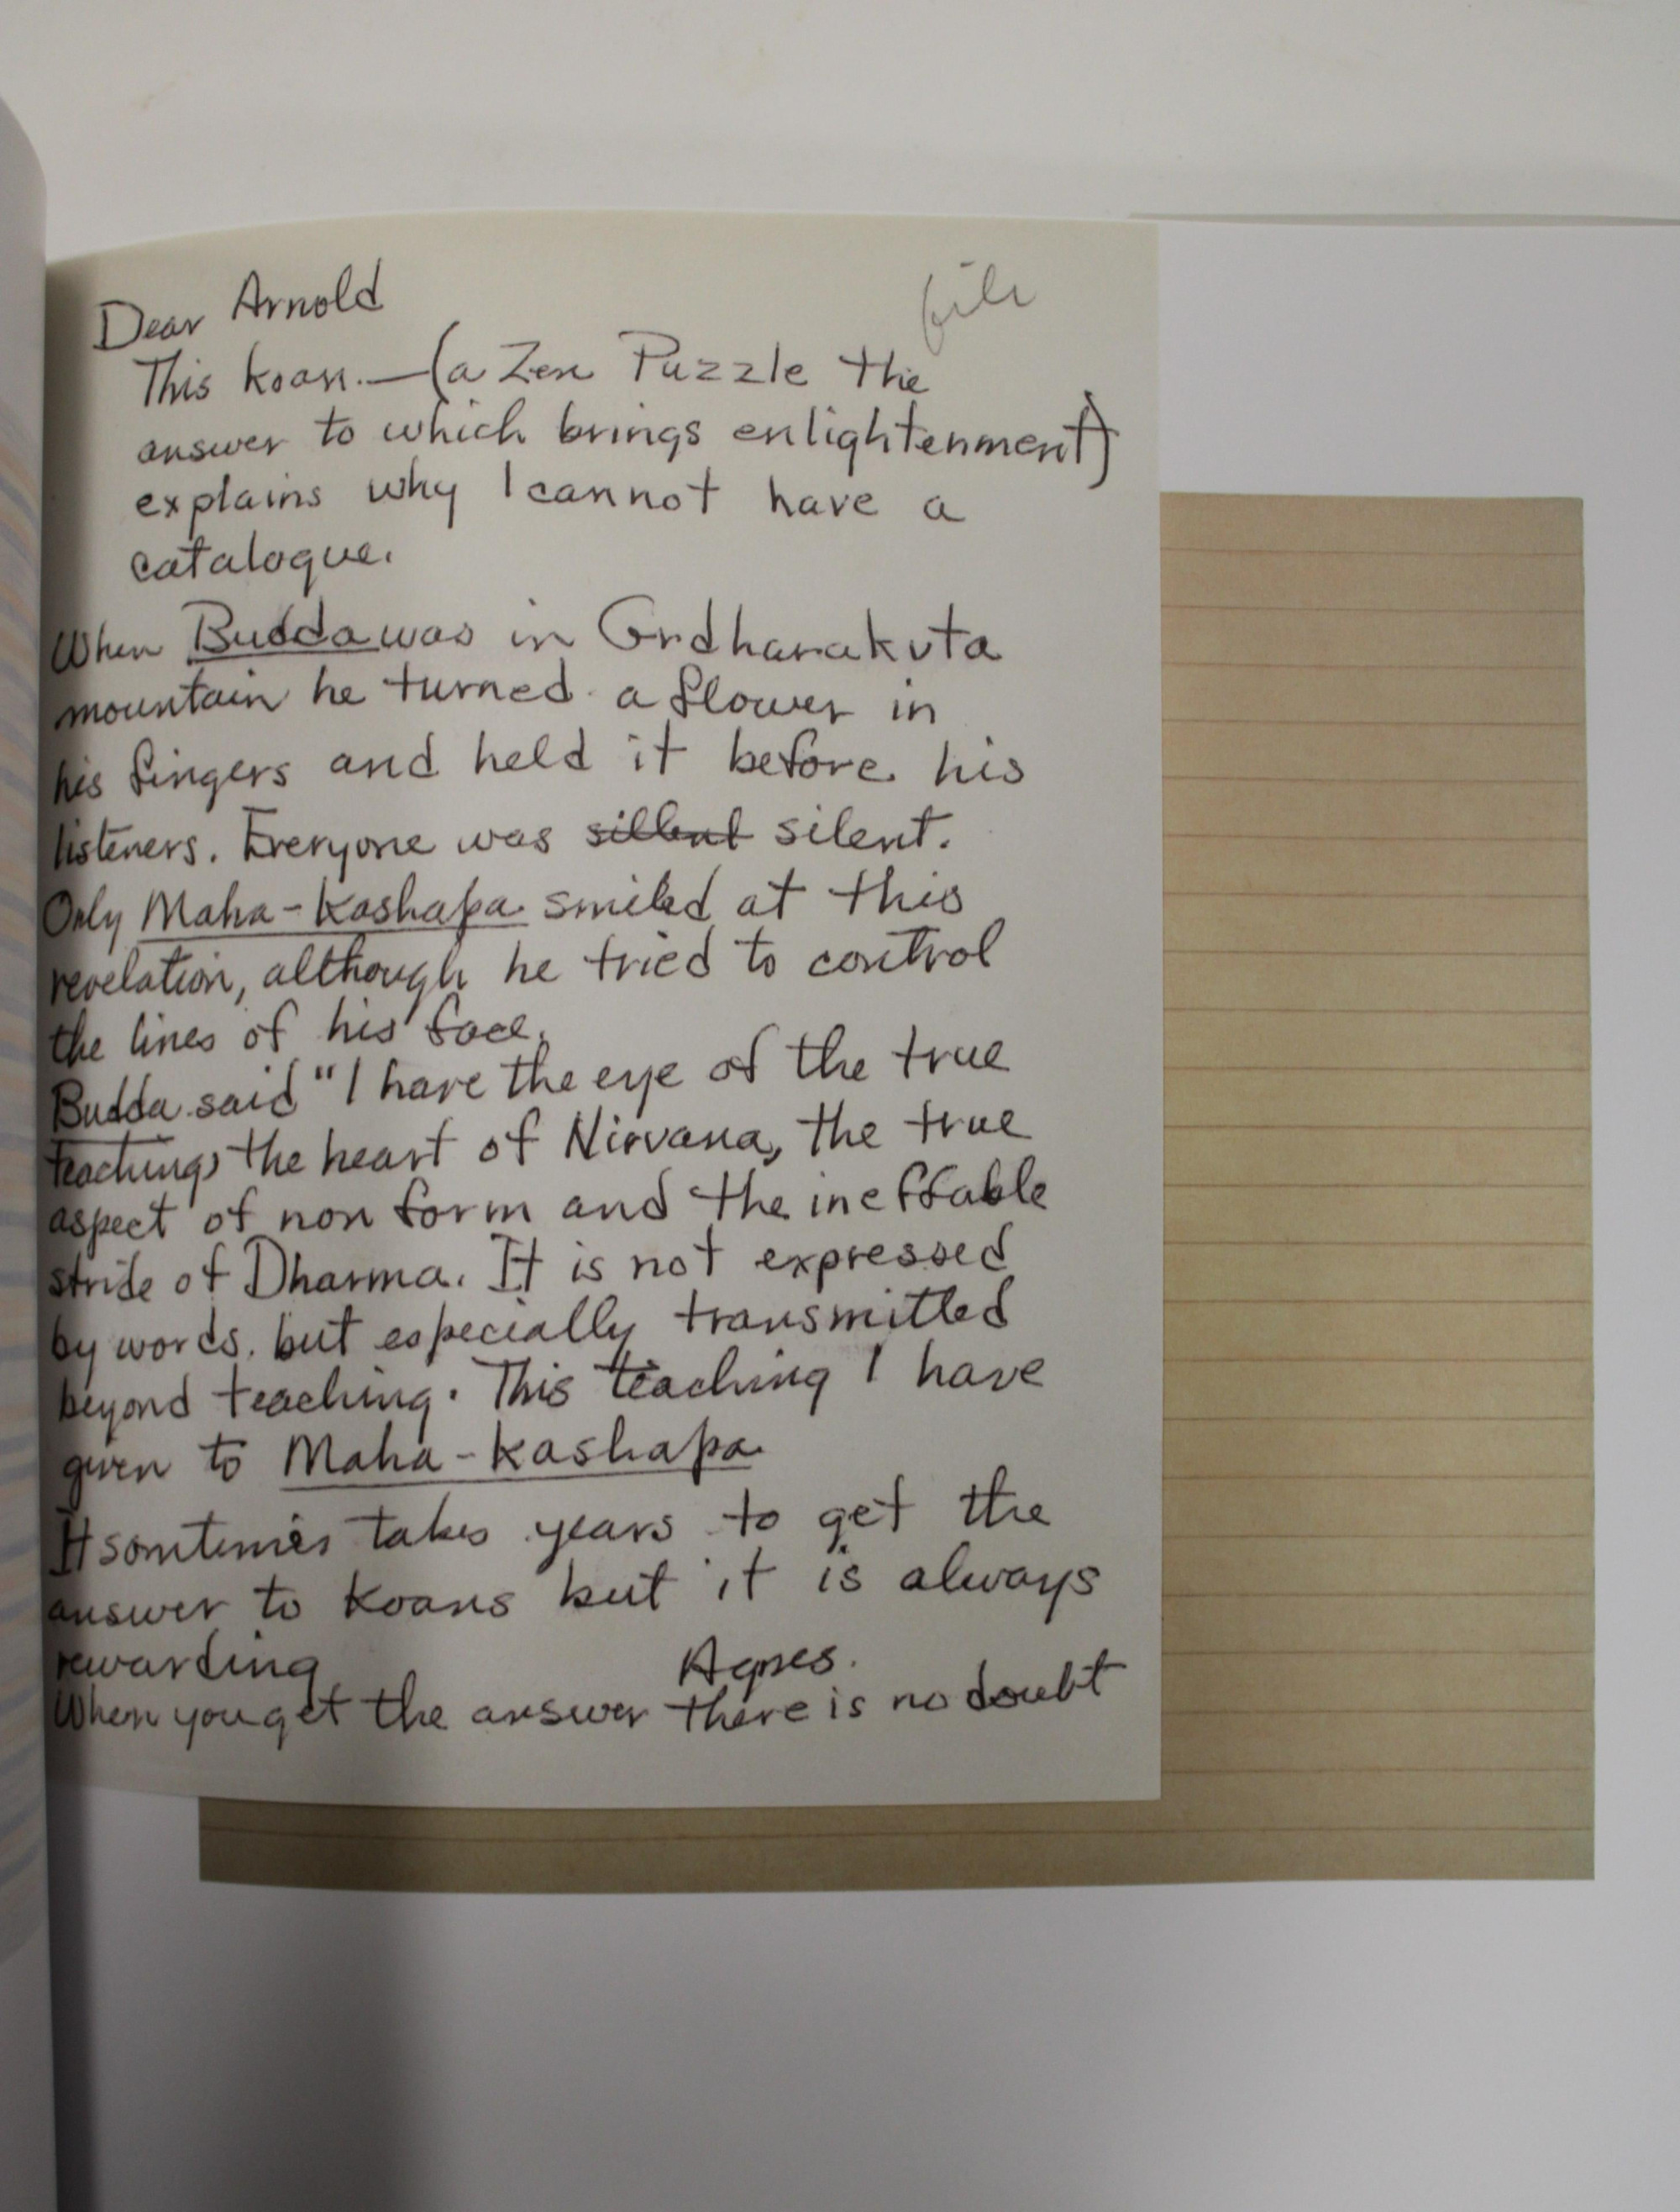 Dear Arnold
file
This koan.—(a Zen Puzzle the
answer to which brings enlightenment)
explains why I cannot have a
catalogue.
When Budda was in Grdharakuta
mountain he turned a flower in
his fingers and held it before his
listeners. Everyone was sillent silent.
Only Maha-Kashapa smiled at this
revelation, although he tried to control
the lines of his face.
Budda said "I have the eye of the true
teaching, the heart of Nirvana, the true
aspect of non form and the ineffable
stride of Dharma. It is not expressed
by words, but especially transmitted
beyond teaching. This teaching I have
given to Maha-Kashapa
It somtimes takes years to get the
answer to Koans but it is always
rewarding
Agnes.
When you get the answer there is no doubt